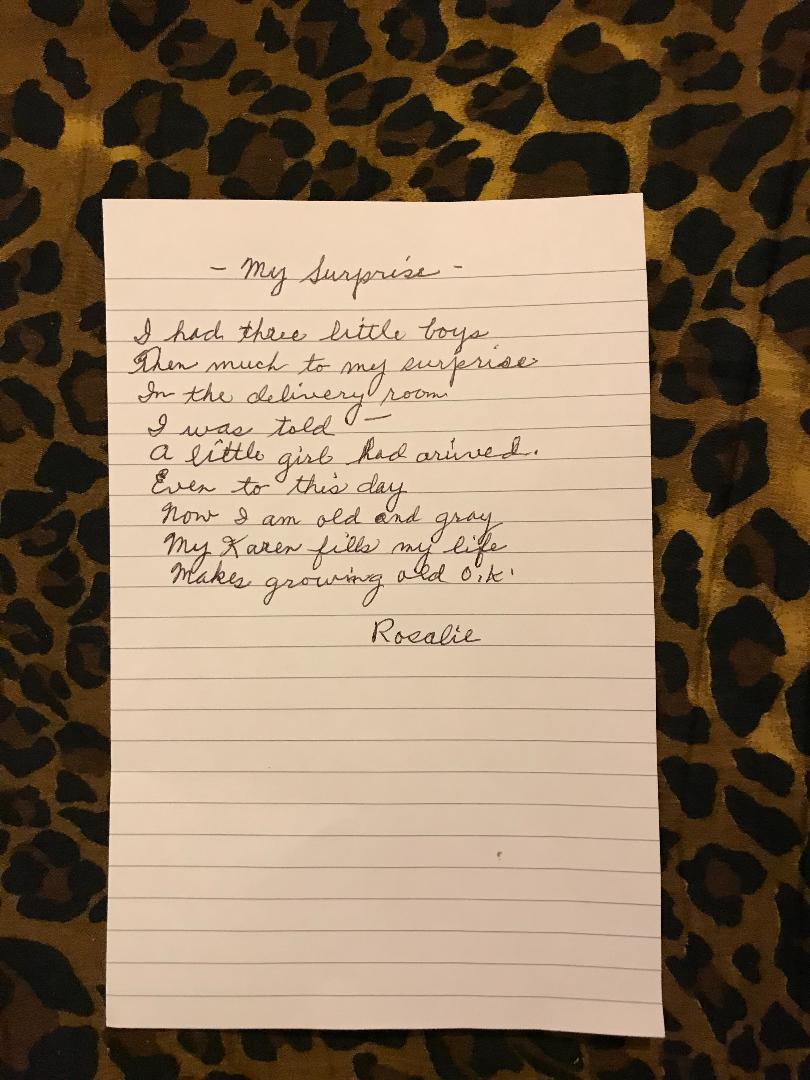 - My Surprise -
I had three little boys
Then much to my surprise
In the delivery room
I was told —
A little girl had arived.
Even to this day
Now I am old and gray
My Karen fills my life
Makes growing old O.K.
Rosalie